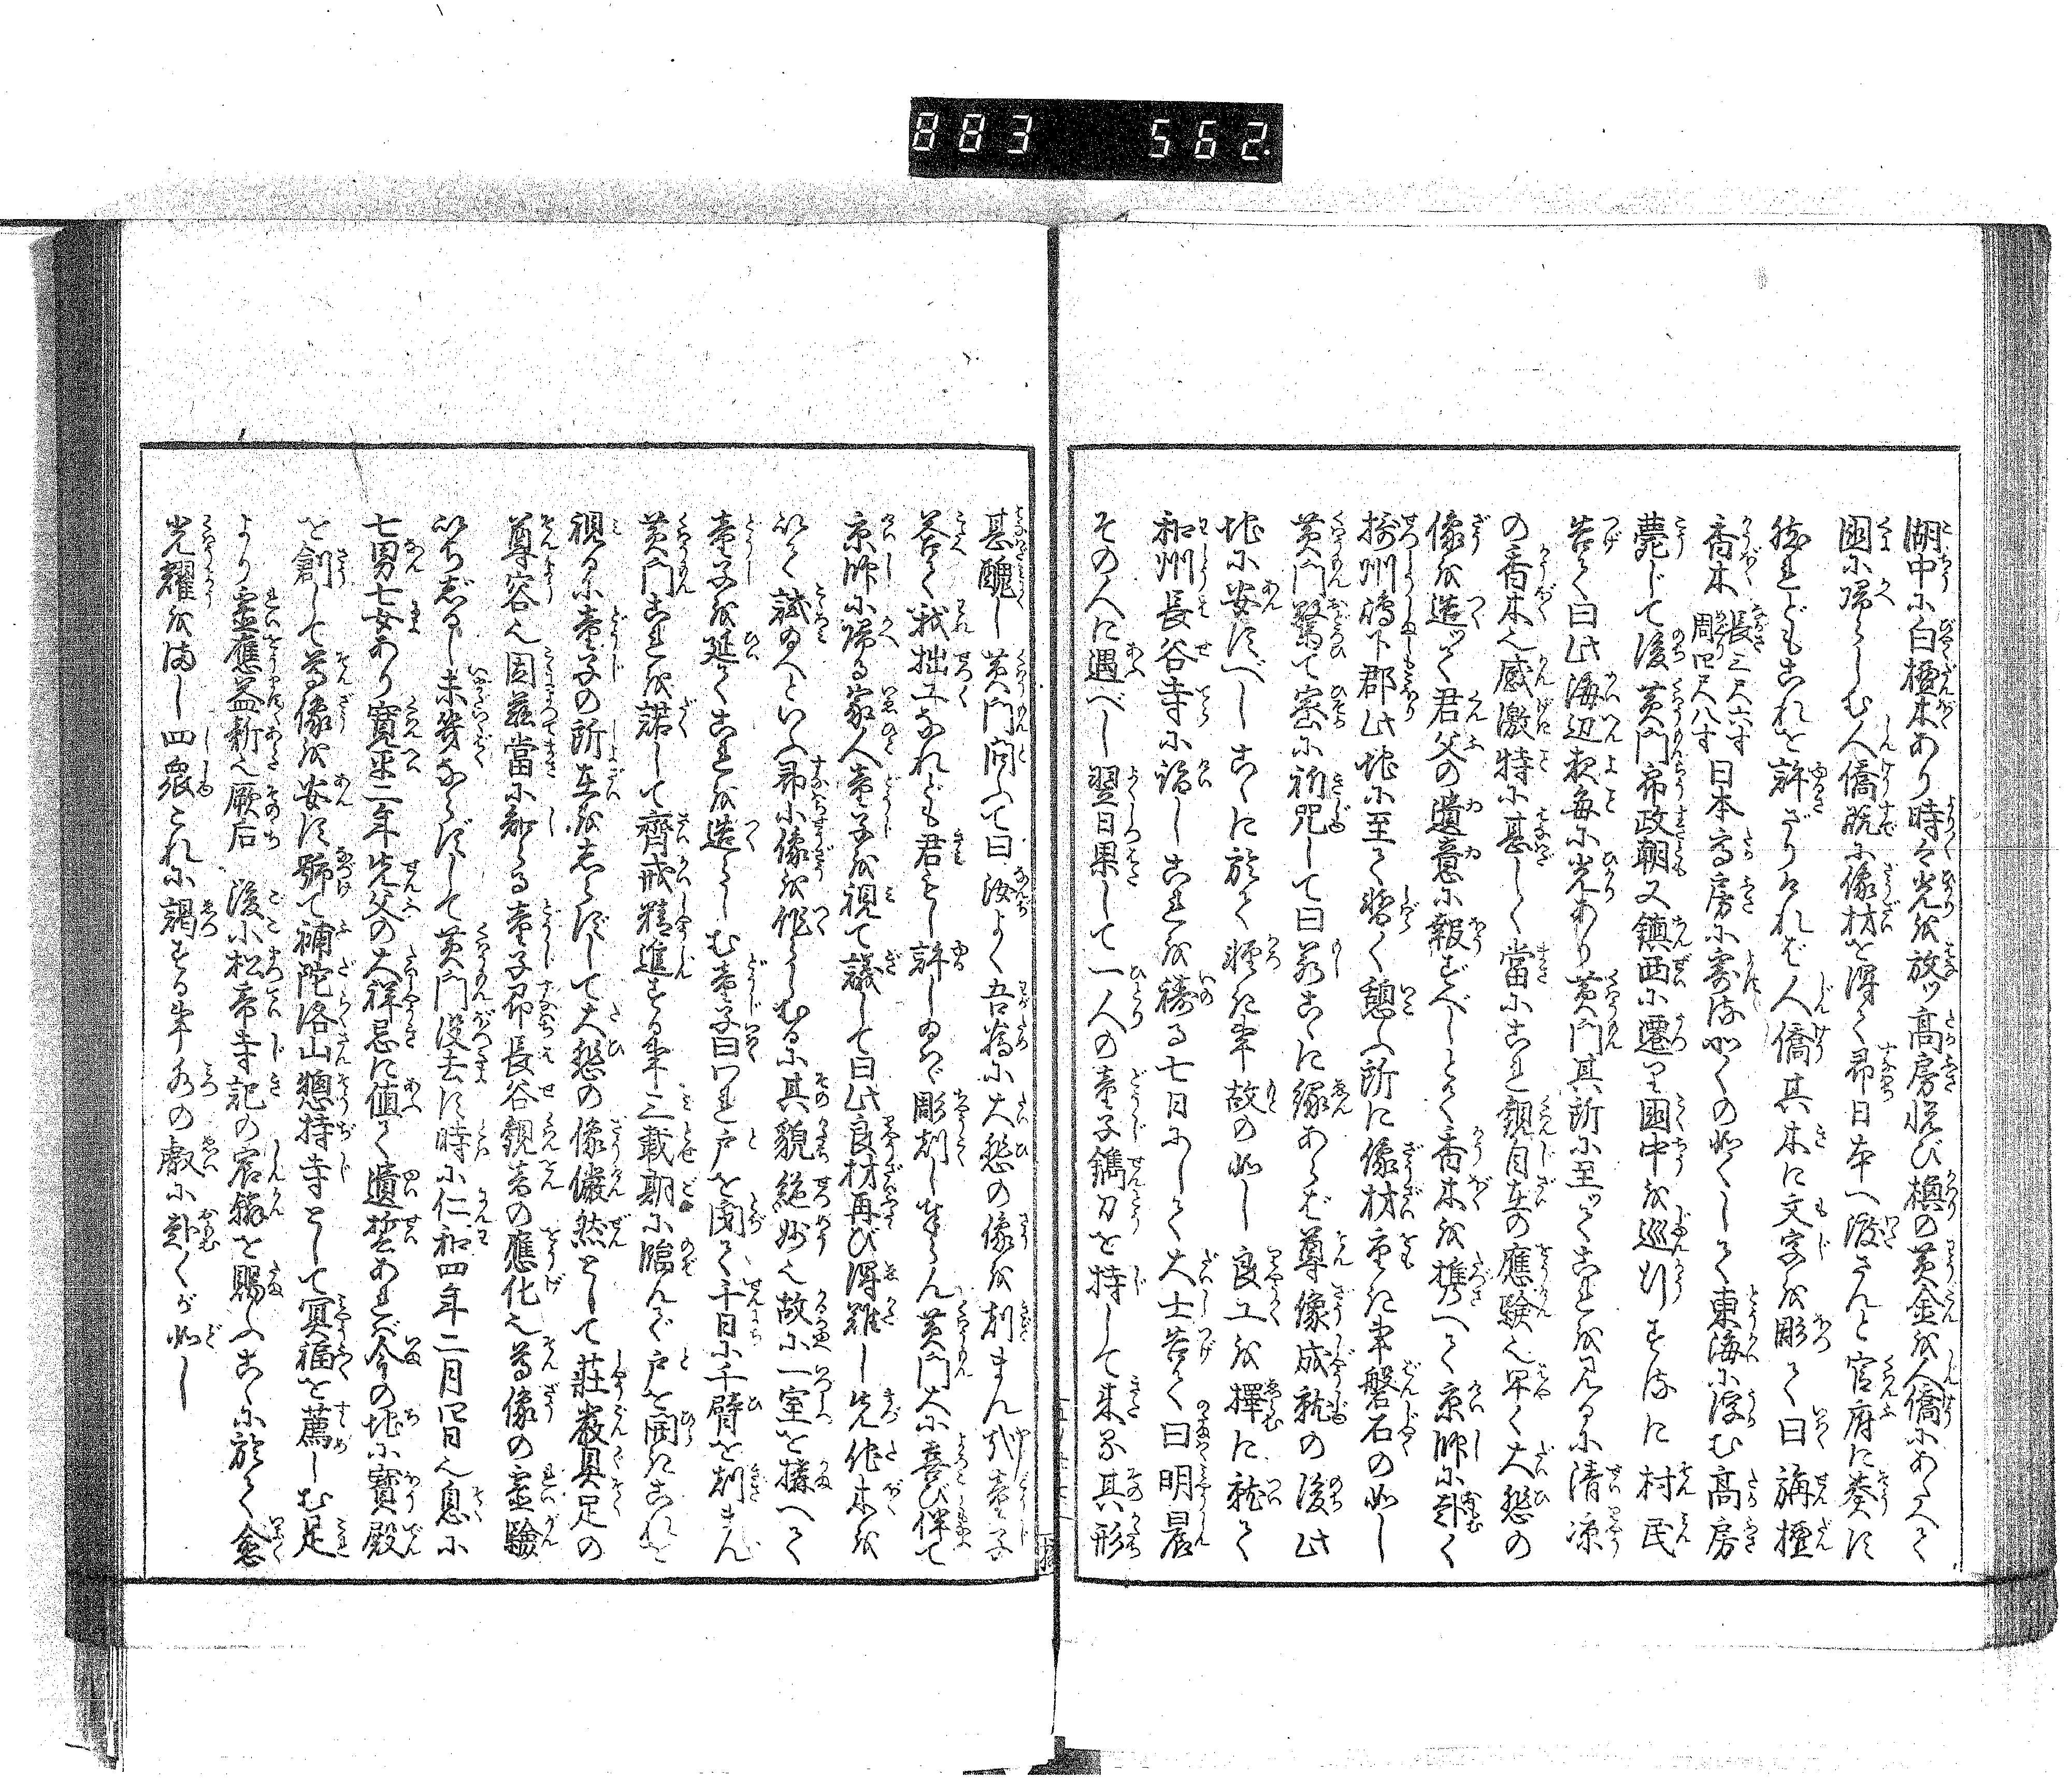 883 562
湖中に白檀木あり時々光を放ッ高房悦び槙の黄金を人僑にあたへて
國に帰らしむ人僑既に像材を得て即日本へ渡さんと官府に奏す
然れどもこれを許ざりければ人僑其木に文字を彫て曰旃檀
香木長三尺六寸周四尺八寸日本高房に寄流如くの如くして東海に浮む高房
薨じて後黄門帝政朝又鎮西に遷り国中を巡行するに村民
告て曰此海辺夜毎に光あり黄門其所に至ッてこれを見るに清凉
の香木也感激特に甚しく當にこれ観自在の應験也早く大悲の
像を造ッて君父の遺意に報ずべしとて香木を携へて京師に赴く
摂州嶋下郡此地に至て暫く憩ふ所に像材重き事磐石の如し
黄門驚て密に祈咒して曰若こゝに縁あらば尊像成就の後此
地に安ずべしこゝに於て軽き事故の如し良工を擇に就て
和州長谷寺に詣しこれを祷る七日にして大士告て曰明晨
その人に遇べし翌日果して一人の童子鐫刀を持して来る其形
甚醜し黄門問ふて曰汝よく吾為に大悲の像を刻まんや童子
答て我拙工なれども君もし許しゐはゞ彫刻し奉らん黄門大に喜び伴て
京師に帰る家人童子を視て議して曰此良材再び得難し先他木を
以て試ゐへといふ即小像を作らしむるに其貌絶妙也故に一室を搆へて
童子を延てこれを造らしむ童子曰われ戸を閉て千日に千臂を刻まん
黄門これを諾して齊戒精進する事三載期に臨んで戸を開きこれを
視るに童子の所在をしらずして大悲の像儼然として荘厳具足の
尊容也因茲當に知る童子即長谷観音の應化也尊像の霊験
いちじるし未幾ならずして黄門没去す時に仁和四年二月四日也息に
七男七女あり寛平二年先父の大祥忌に値て遺誓あれば今の地に寶殿
を創して尊像を安す號て補陀洛山惣持寺として冥福を薦しむ足
より霊應益新也厥后後小松帝寺記の宸翰を賜ふこゝに於て愈
光耀をまし四衆これに謁する事水の叡に赴くが如し